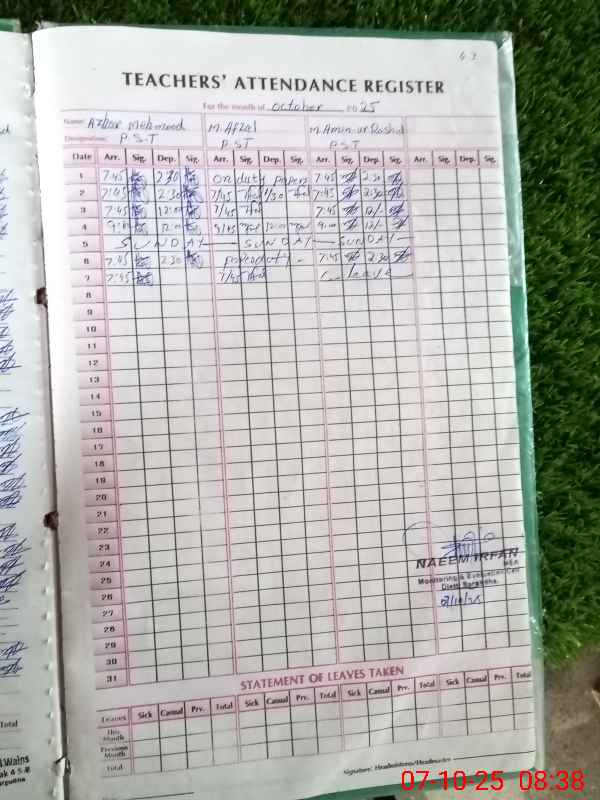 TEACHERS' ATTENDANCE REGISTER
For the month of October 2025
Name: Azhar Mehmood M. Afzal M. Amin ur Rashid
Designation: P.S.T P.S.T P.S.T
Date Arr. Sig. Dep. Sig. Arr. Sig. Dep. Sig. Arr. Sig. Dep. Sig. Arr. Sig. Dep. Sig.
1 7:45 2:30 on duty papers 7:45 2:30
2 7:45 2:30 7/45 1/30 7:45 2:30
3 7:45 12:00 7/45 7:45 12/-
4 9:00 12:00 9/45 12:00 9:00 12/-
5 SUNDAY SUNDAY SUNDAY
6 7:45 2:30 7:45 2:30
7 7:45 7/45 Leave
8
9
10
11
12
13
14
15
16
17
18
19
20
21
22
23
24
25
26
27
28
29
30
31
NAEEM IRFAN
MEA
Monitoring & Evaluation Cell
Distt. Sargodha.
07/10/25
STATEMENT OF LEAVES TAKEN
Leaves Sick Casual Prv. Total Sick Casual Prv. Total Sick Casual Prv. Total Sick Casual Prv. Total
This Month
Previous Month
Total
Signature: Headmistress/Headmaster
Total
07-10-25 08:38